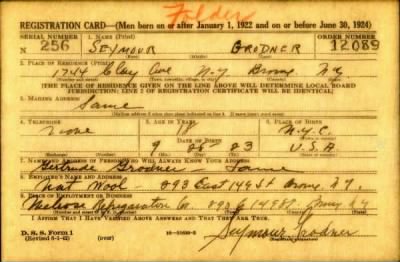 REGISTRATION CARD—(Men born on or after January 1, 1922 and on or before June 30, 1924)
SERIAL NUMBER 1. NAME (Print) ORDER NUMBER
N 256 SEYMOUR GRODNER 12089
2. PLACE OF RESIDENCE (Print)
1754 Clay Ave N-Y Bronx N.Y
[THE PLACE OF RESIDENCE GIVEN ON THE LINE ABOVE WILL DETERMINE LOCAL BOARD
JURISDICTION; LINE 2 OF REGISTRATION CERTIFICATE WILL BE IDENTICAL]
3. MAILING ADDRESS
Same
[Mailing address if other than place indicated on line 2. If same insert word same]
4. TELEPHONE 5. AGE IN YEARS 6. PLACE OF BIRTH
none 18 N.Y.C.
DATE OF BIRTH
9 23 U.S.A.
7. NAME AND ADDRESS OF PERSON WHO WILL ALWAYS KNOW YOUR ADDRESS
Gertrude Grodner — Same
8. EMPLOYER'S NAME AND ADDRESS
893 East 149 St Bronx N.Y.
9. PLACE OF EMPLOYMENT OR BUSINESS
Melrose Refrigeration Co. 893 E 149 St. Bronx N.Y
I AFFIRM THAT I HAVE VERIFIED ABOVE ANSWERS AND THAT THEY ARE TRUE.
D. S. S. Form 1
(Revised 6-1-42) (over)
Seymour Grodner